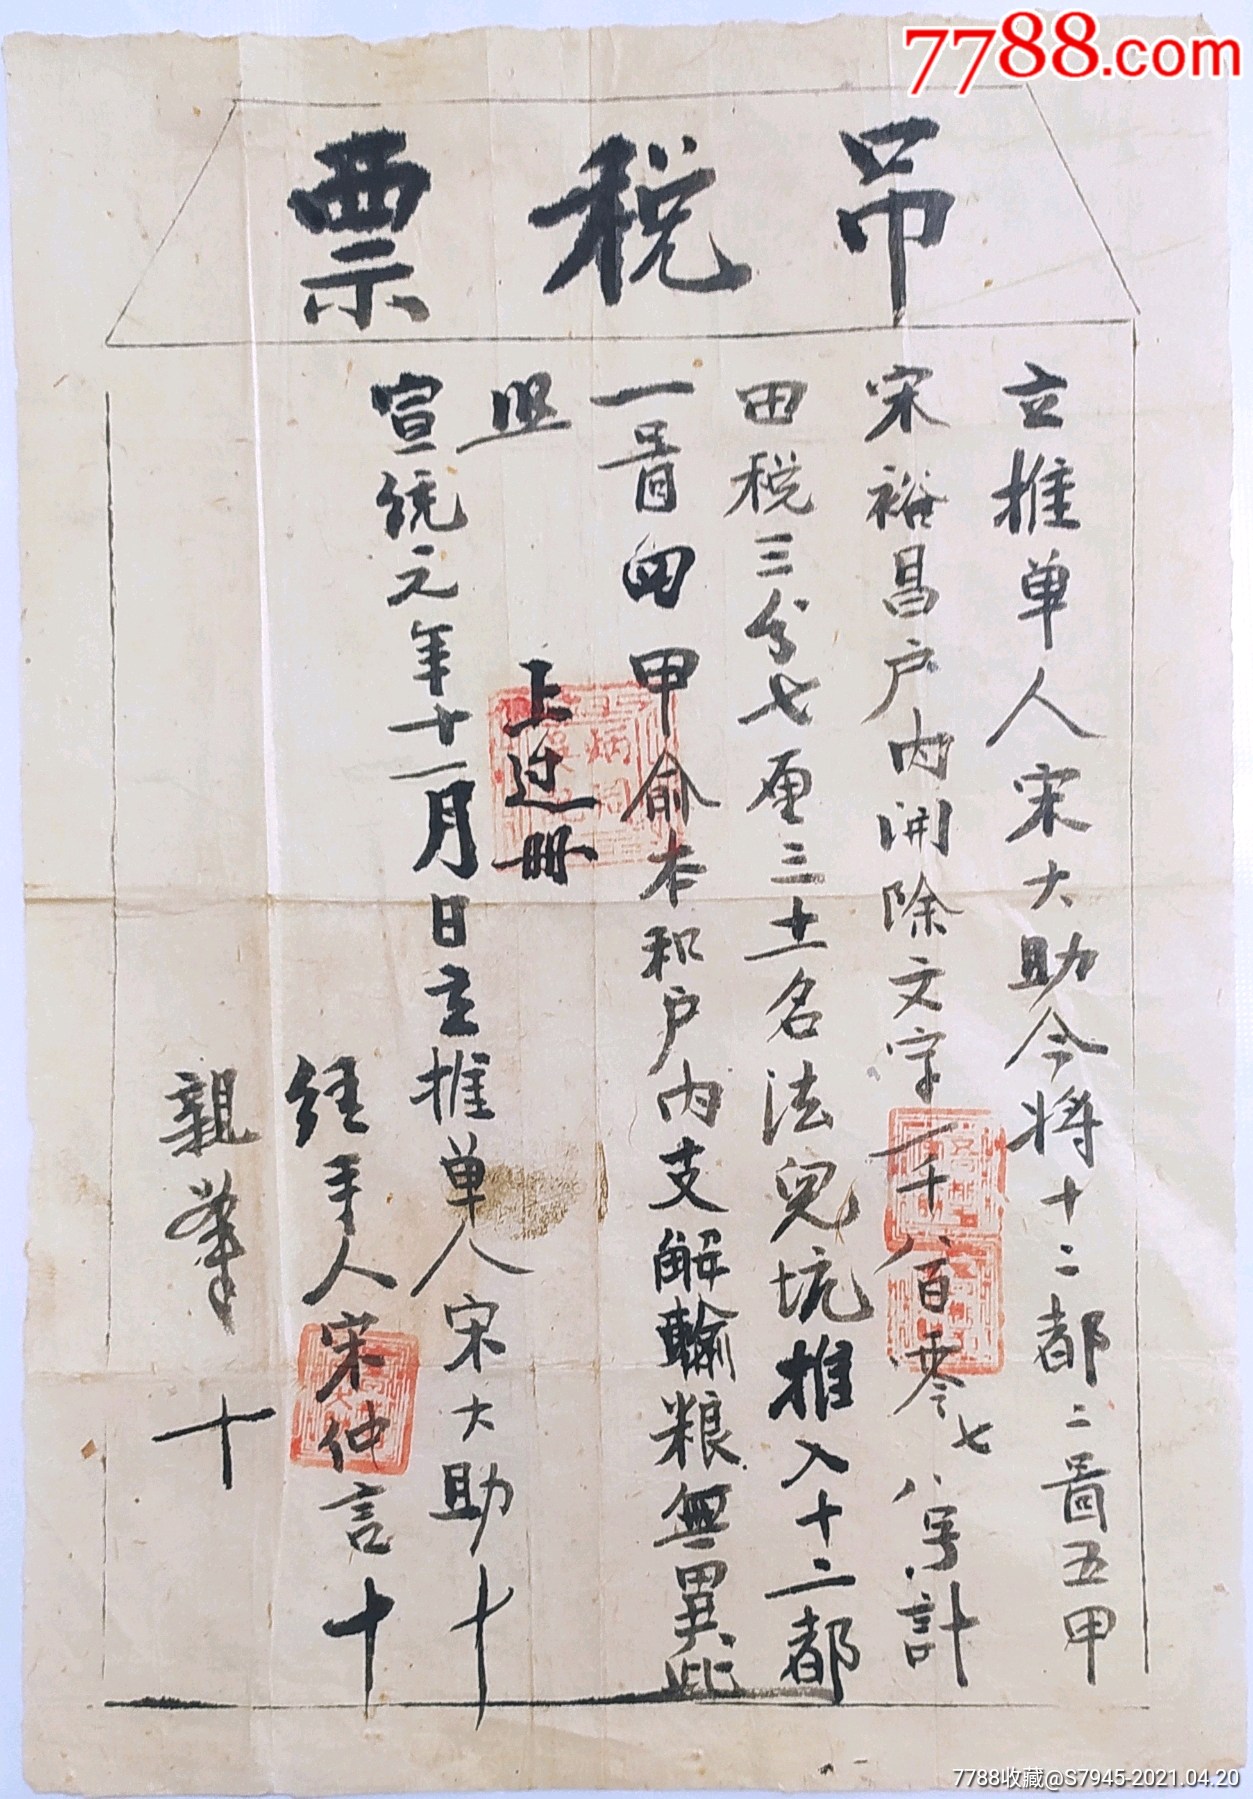 7788.com
吊税票
立推单人宋大助今将十二都二啚五甲
宋裕昌户内開除文字一千八百零七八号計
田税三分七厘三土名法兒坑推入十二都
一啚四甲俞本和户内支解輸粮無異此
照
上过册
宣统元年十一月日立推单人宋大助十
经手人宋仲言十
親筆十
7788收藏@S7945-2021.04.20